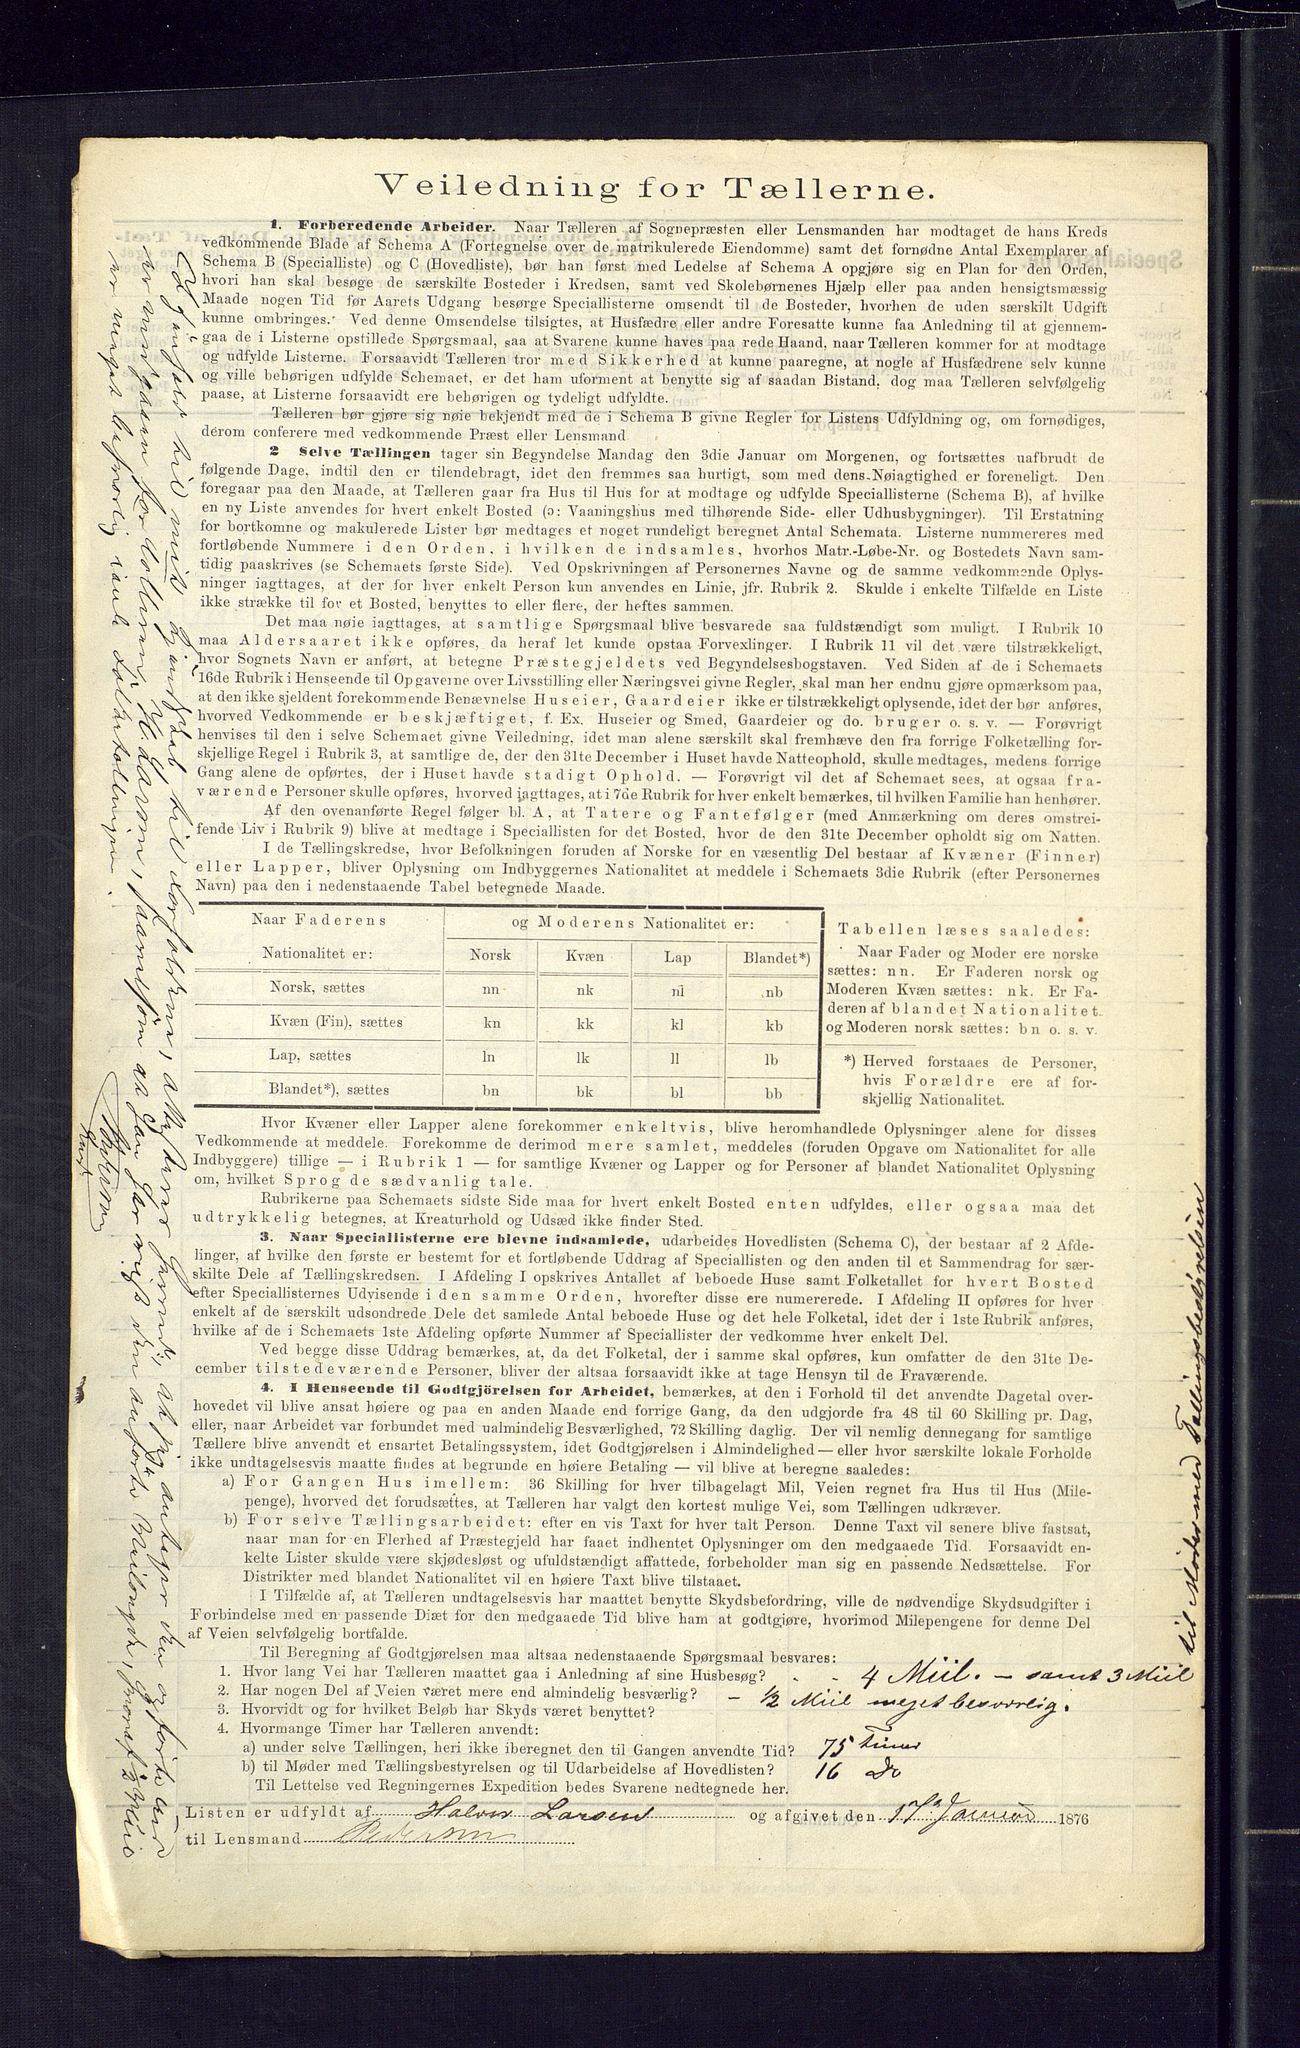 Veiledning for Tællerne.
1. Forberedende Arbeider. Naar Tælleren af Sognepræsten eller Lensmanden har modtaget de hans Kreds
vedkommende Blade af Schema A (Fortegnelse over de matrikulerede Eiendomme) samt det fornødne Antal Exemplarer af
Schema B (Specialliste) og C (Hovedliste), bør han først med Ledelse af Schema A opgjøre sig en Plan for den Orden,
hvori han skal besøge de særskilte Bosteder i Kredsen, samt ved Skolebørnenes Hjælp eller paa anden hensigtsmæssig
Maade nogen Tid før Aarets Udgang besørge Speciallisterne omsendt til de Bosteder, hvorhen de uden særskilt Udgift
kunne ombringes. Ved denne Omsendelse tilsigtes, at Husfædre eller andre Foresatte kunne faa Anledning til at gjennem-
gaa de i Listerne opstillede Spørgsmaal, saa at Svarene kunne haves paa rede Haand, naar Tælleren kommer for at modtage
og udfylde Listerne. Forsaavidt Tælleren tror med Sikkerhed at kunne paaregne, at nogle af Husfædrene selv kunne
og ville behørigen udfylde Schemaet, er det ham uforment at benytte sig af saadan Bistand, dog maa Tælleren selvfølgelig
paase, at Listerne forsaavidt ere behørigen og tydeligt udfyldte.
Tælleren bør gjøre sig nøie bekjendt med de i Schema B givne Regler for Listens Udfyldning og, om fornødiges,
derom conferere med vedkommende Præst eller Lensmand
2 Selve Tællingen tager sin Begyndelse Mandag den 3die Januar om Morgenen, og fortsættes uafbrudt de
følgende Dage, indtil den er tilendebragt, idet den fremmes saa hurtigt, som med dens Nøiagtighed er foreneligt. Den
foregaar paa den Maade, at Tælleren gaar fra Hus til Hus for at modtage og udfylde Speciallisterne (Schema B), af hvilke
en ny Liste anvendes for hvert enkelt Bosted (ɔ: Vaaningshus med tilhørende Side- eller Udhusbygninger). Til Erstatning
for bortkomne og makulerede Lister bør medtages et noget rundeligt beregnet Antal Schemata. Listerne nummereres med
fortløbende Nummere i den Orden, i hvilken de indsamles, hvorhos Matr.-Løbe-Nr. og Bostedets Navn sam-
tidig paaskrives (se Schemaets første Side). Ved Opskrivningen af Personernes Navne og de samme vedkommende Oplys-
ninger iagttages, at der for hver enkelt Person kun anvendes en Linie, jfr. Rubrik 2. Skulde i enkelte Tilfælde en Liste
ikke strække til for et Bosted, benyttes to eller flere, der heftes sammen.
Det maa nøie iagttages, at samtlige Spørgsmaal blive besvarede saa fuldstændigt som muligt. I Rubrik 10
maa Aldersaaret ikke opføres, da heraf let kunde opstaa Forvexlinger. I Rubrik 11 vil det være tilstrækkeligt,
hvor Sognets Navn er anført, at betegne Præstegjeldets ved Begyndelsesbogstaven. Ved Siden af de i Schemaets
16de Rubrik i Henseende til Opgaverne over Livsstilling eller Næringsvei givne Regler, skal man her endnu gjøre opmærksom paa,
at den ikke sjeldent forekommende Benævnelse Huseier, Gaardeier ikke er tilstrækkeligt oplysende, idet der bør anføres,
hvorved Vedkommende er beskjæftiget, f. Ex. Huseier og Smed, Gaardeier og do. bruger o. s. v. — Forøvrigt
henvises til den i selve Schemaet givne Veiledning, idet man alene særskilt skal fremhæve den fra forrige Folketælling for-
skjellige Regel i Rubrik 3, at samtlige de, der den 31te December i Huset havde Natteophold, skulle medtages, medens forrige
Gang alene de opførtes, der i Huset havde stadigt Ophold. — Forøvrigt vil det af Schemaet sees, at ogsaa fra-
værende Personer skulle opføres, hvorved iagttages, at i 7de Rubrik for hver enkelt bemærkes, til hvilken Familie han henhører.
Af den ovenanførte Regel følger bl. A, at Tatere og Fantefølger (med Anmærkning om deres omstrei-
fende Liv i Rubrik 9) blive at medtage i Speciallisten for det Bosted, hvor de den 31te December opholdt sig om Natten.
I de Tællingskredse, hvor Befolkningen foruden af Norske for en væsentlig Del bestaar af Kvæner (Finner)
eller Lapper, bliver Oplysning om Indbyggernes Nationalitet at meddele i Schemaets 3die Rubrik (efter Personernes
Navn) paa den i nedenstaaende Tabel betegnede Maade.
Naar Faderens og Moderens Nationalitet er:
Nationalitet er: Norsk Kvæn Lap Blandet*)
Norsk, sættes nn nk nl nb
Kvæn (Fin), sættes kn kk kl kb
Lap, sættes ln lk ll lb
Blandet*), sættes bn bk bl bb
Tabellen læses saaledes:
Naar Fader og Moder ere norske
sættes: nn. Er Faderen norsk og
Moderen Kvæn sættes: nk. Er Fa-
deren af blandet Nationalitet
og Moderen norsk sættes: bn o. s. v.
*) Herved forstaaes de Personer,
hvis Forældre ere af for-
skjellig Nationalitet.
Hvor Kvæner eller Lapper alene forekommer enkeltvis, blive heromhandlede Oplysninger alene for disses
Vedkommende at meddele. Forekomme de derimod mere samlet, meddeles (foruden Opgave om Nationalitet for alle
Indbyggere) tillige — i Rubrik 1 — for samtlige Kvæner og Lapper og for Personer af blandet Nationalitet Oplysning
om, hvilket Sprog de sædvanlig tale.
Rubrikerne paa Schemaets sidste Side maa for hvert enkelt Bosted enten udfyldes, eller ogsaa maa det
udtrykkelig betegnes, at Kreaturhold og Udsæd ikke finder Sted.
3. Naar Speciallisterne ere blevne indsamlede, udarbeides Hovedlisten (Schema C), der bestaar af 2 Afde-
linger, af hvilke den første er bestemt for et fortløbende Uddrag af Speciallisten og den anden til et Sammendrag for sær-
skilte Dele af Tællingskredsen. I Afdeling I opskrives Antallet af beboede Huse samt Folketallet for hvert Bosted
efter Speciallisternes Udvisende i den samme Orden, hvorefter disse ere numererede. I Afdeling II opføres for hver
enkelt af de særskilt udsondrede Dele det samlede Antal beboede Huse og det hele Folketal, idet der i 1ste Rubrik anføres,
hvilke af de i Schemaets 1ste Afdeling opførte Nummer af Speciallister der vedkomme hver enkelt Del.
Ved begge disse Uddrag bemærkes, at, da det Folketal, der i samme skal opføres, kun omfatter de den 31te De-
cember tilstedeværende Personer, bliver der altsaa forsaavidt ikke at tage Hensyn til de Fraværende.
4. I Henseende til Godtgjörelsen for Arbeidet, bemærkes, at den i Forhold til det anvendte Dagetal over-
hovedet vil blive ansat høiere og paa en anden Maade end forrige Gang, da den udgjorde fra 48 til 60 Skilling pr. Dag,
eller, naar Arbeidet var forbundet med ualmindelig Besværlighed, 72 Skilling daglig. Der vil nemlig dennegang for samtlige
Tællere blive anvendt et ensartet Betalingssystem, idet Godtgjørelsen i Almindelighed — eller hvor særskilte lokale Forholde
ikke undtagelsesvis maatte findes at begrunde en høiere Betaling — vil blive at beregne saaledes:
a) For Gangen Hus imellem: 36 Skilling for hver tilbagelagt Mil, Veien regnet fra Hus til Hus (Mile-
penge), hvorved det forudsættes, at Tælleren har valgt den kortest mulige Vei, som Tællingen udkræver.
b) For selve Tællingsarbeidet: efter en vis Taxt for hver talt Person. Denne Taxt vil senere blive fastsat,
naar man for en Flerhed af Præstegjeld har faaet indhentet Oplysninger om den medgaaede Tid. Forsaavidt en-
kelte Lister skulde være skjødesløst og ufuldstændigt affattede, forbeholder man sig en passende Nedsættelse. For
Distrikter med blandet Nationalitet vil en høiere Taxt blive tilstaaet.
I Tilfælde af, at Tælleren undtagelsesvis har maattet benytte Skydsbefordring, ville de nødvendige Skydsudgifter i
Forbindelse med en passende Diæt for den medgaaede Tid blive ham at godtgjøre, hvorimod Milepengene for denne Del
af Veien selvfølgelig bortfalde.
Til Beregning af Godtgjørelsen maa altsaa nedenstaaende Spørgsmaal besvares:
1. Hvor lang Vei har Tælleren maattet gaa i Anledning af sine Husbesøg? 4 Miil. — samt 3 Miil
til Möder med Tællingsbestyrelsen
2. Har nogen Del af Veien været mere end almindelig besværlig? — 1/2 Miil meget besværlig.
3. Hvorvidt og for hvilket Beløb har Skyds været benyttet?
4. Hvormange Timer har Tælleren anvendt:
a) under selve Tællingen, heri ikke iberegnet den til Gangen anvendte Tid? 75 Timer
b) til Møder med Tællingsbestyrelsen og til Udarbeidelse af Hovedlisten? 16 Do
Til Lettelse ved Regningernes Expedition bedes Svarene nedtegnede her.
Listen er udfyldt af Halvor Larsen og afgivet den 17. Januar 1876
til Lensmand Pederson